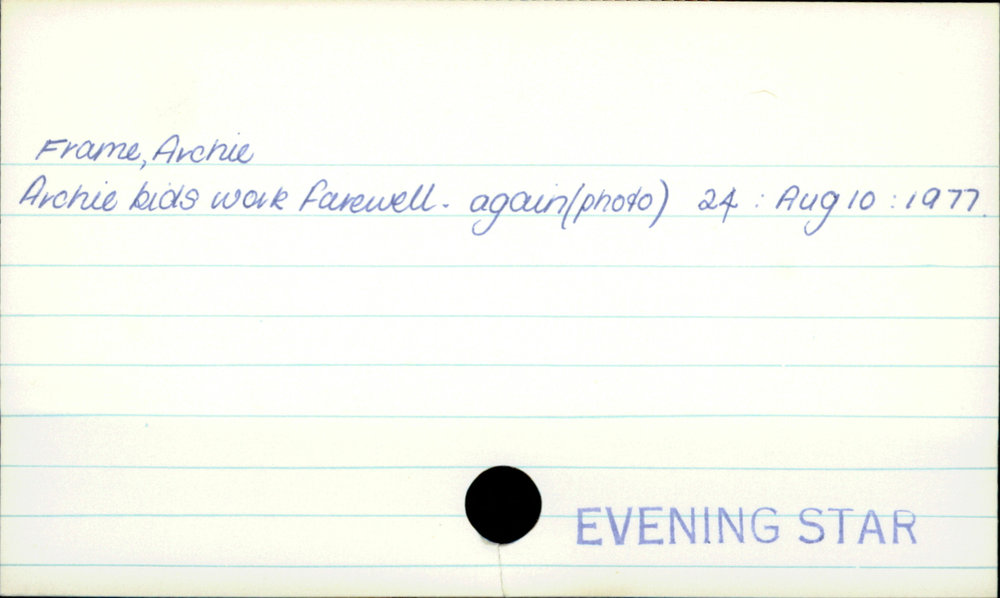 Frame, Archie
Archie bids work farewell - again (photo) 24 : Aug 10 : 1977.
EVENING STAR